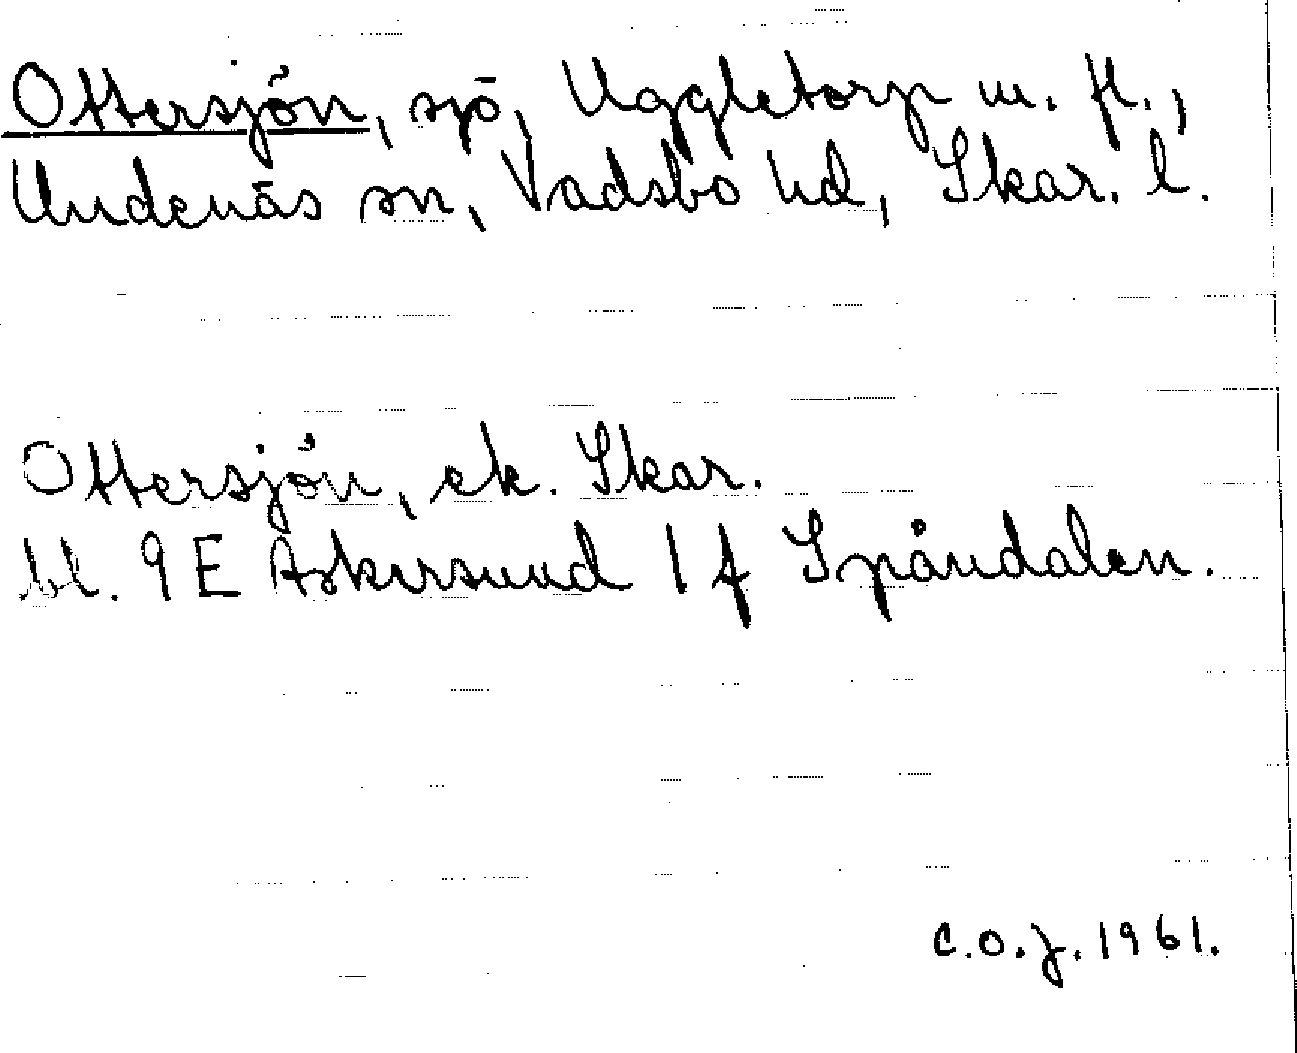 Ottersjön, sjö, Uggletorp m. fl.,
Undenäs sn, Vadsbo hd, Skar. l.
Ottersjön, ek. Skar.
bl. 9 E Askersund 1 f Spåndalen.
C.O.J. 1961.